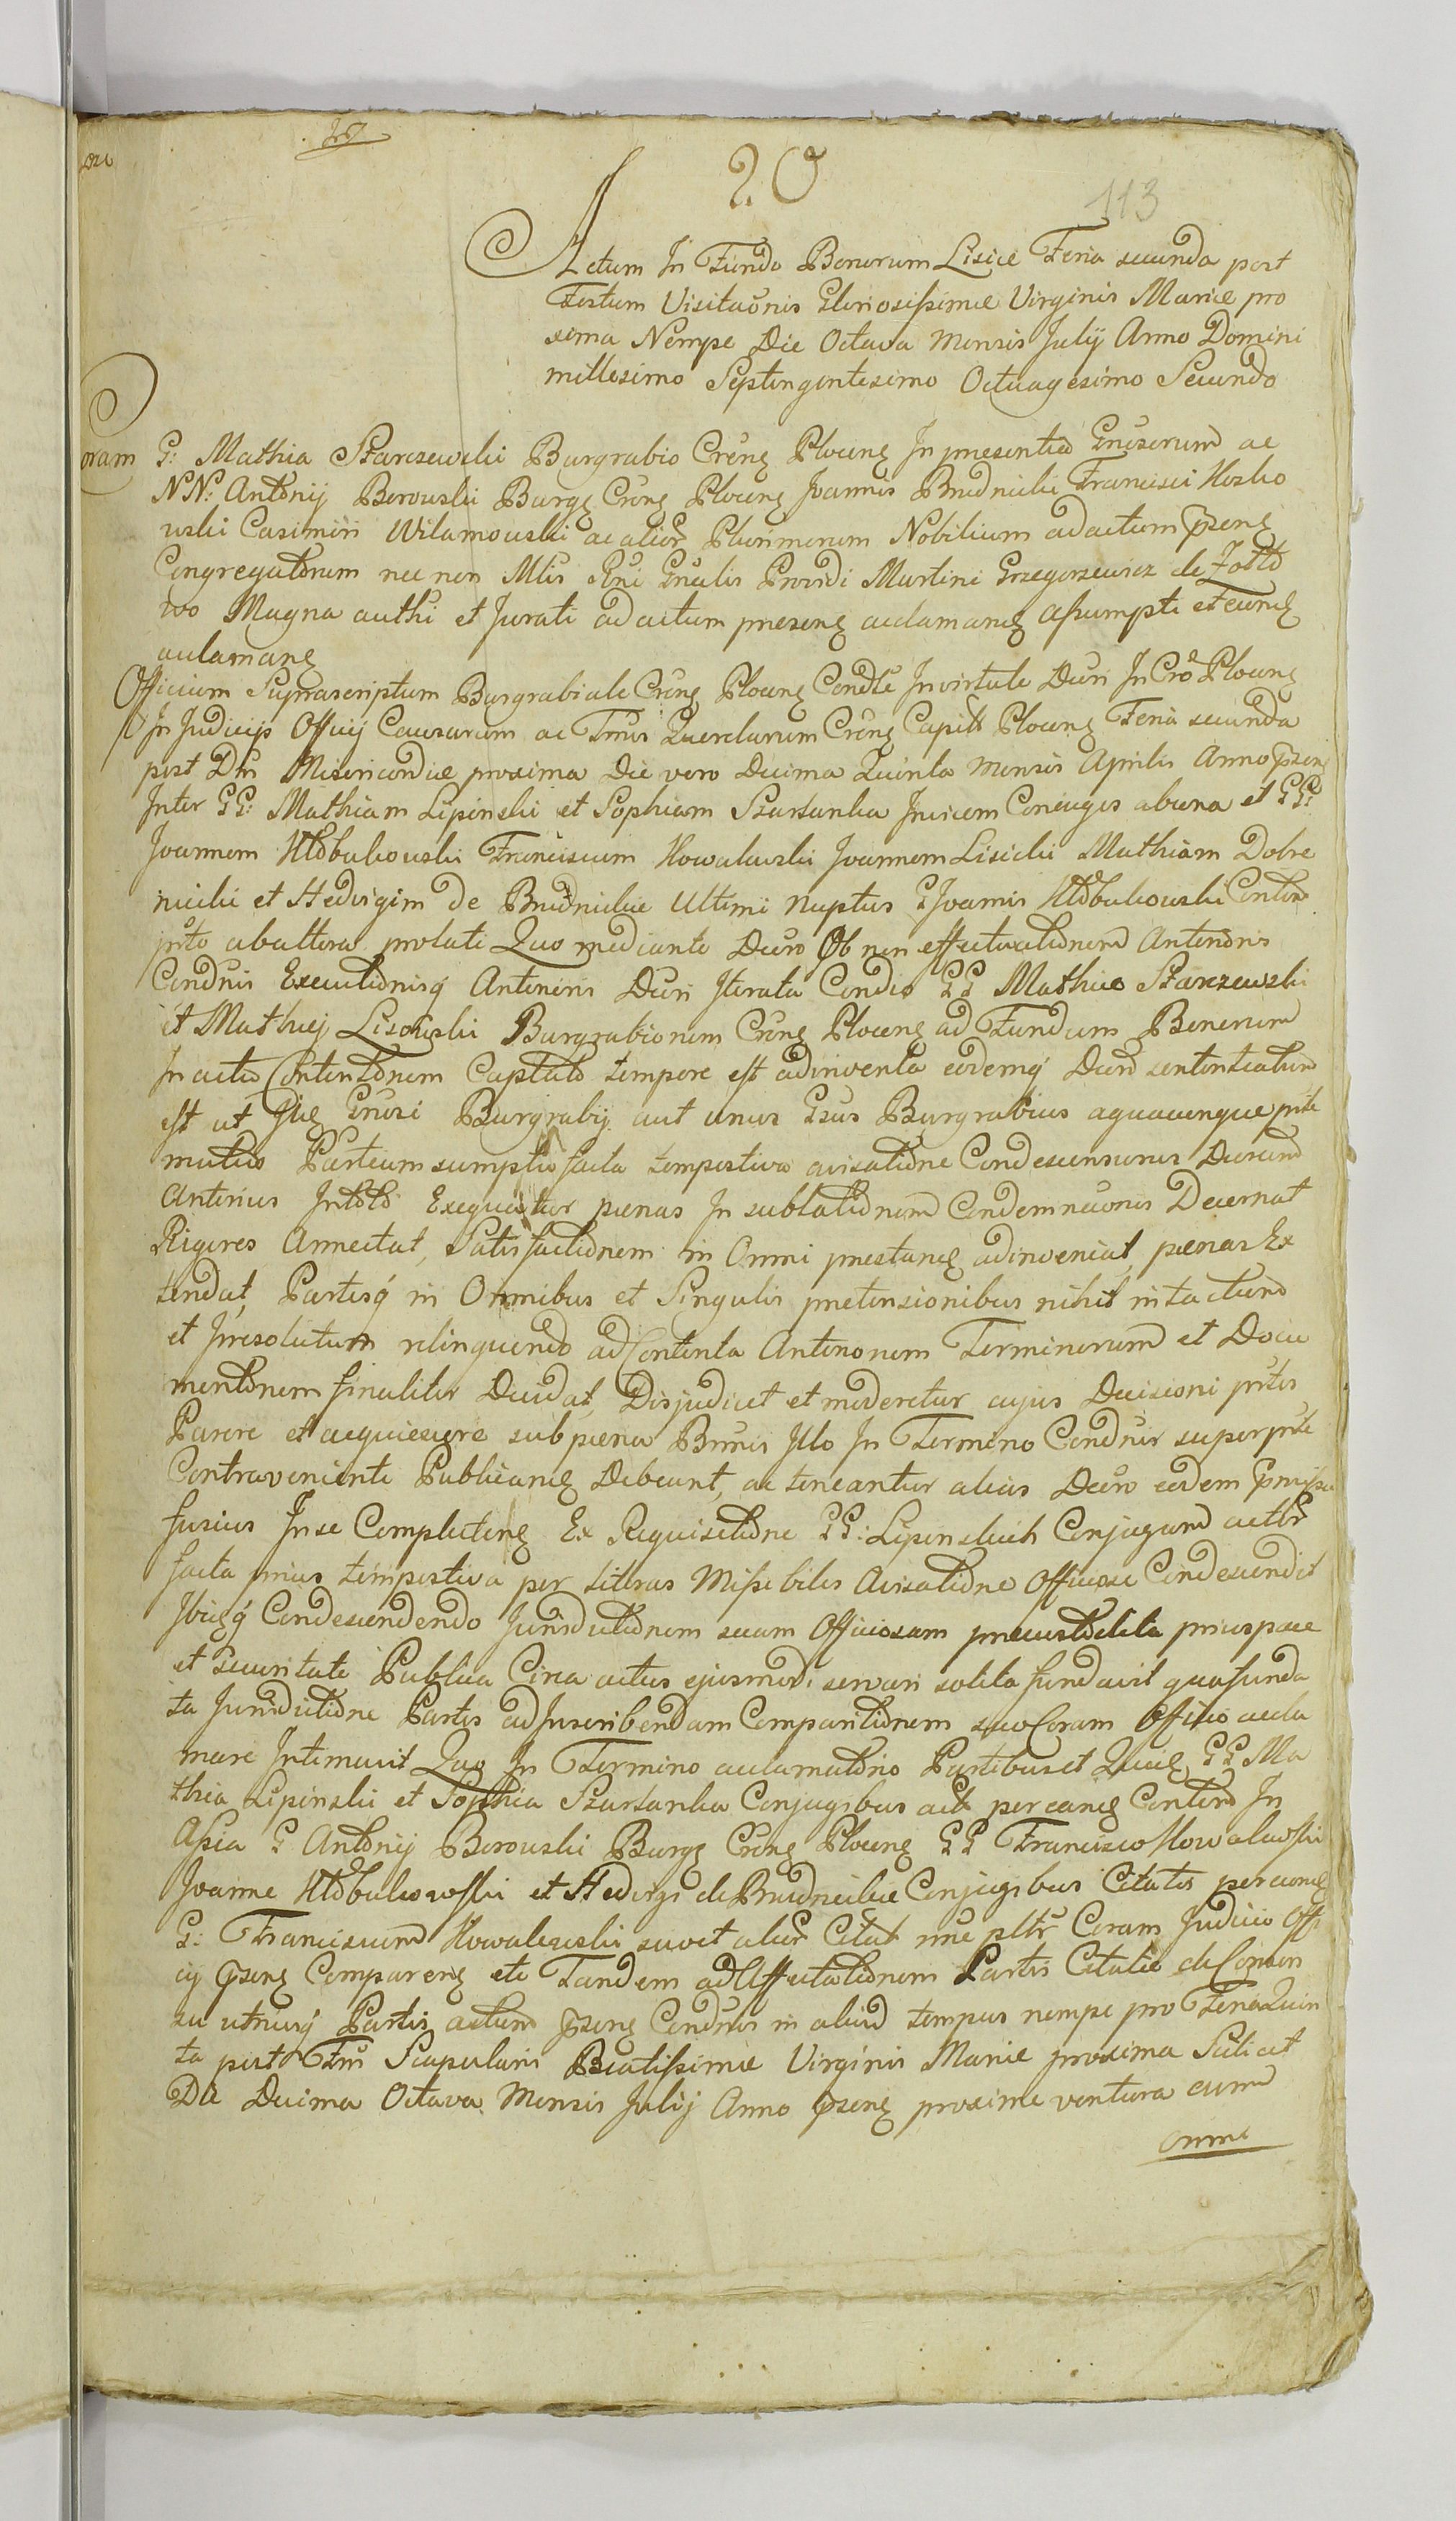 20
113
Actum In Fundo Bonorum Lisice Feria secunda post
Festum Visitaonis Gloriosissimae Virginis Mariae pro
xima Nempe Die Octava Mensis Julij Anno Domini
millesimo Septingentesimo Octuagesimo Secundo
Coram G: Mathia Starczewski Burgrabio Crêng Ploceng In presentia Gnrserum ac
NN: Antonij Borowski Burgg Creng Ploceng Joannis Brudnicki Francisci Kozko
wski Casimiri Wilamowski ac alior Plurimorum Nobilium ad actum pseng
Congregatorum nec non Mlis Rni Gnulis Providi Martini Grzegorzewicz de
wo Magna authi et Jurati ad actum preseng acclamang assumpti et eumq
aclamang
Officium Suprascriptum Burgrabiale Creng Ploceng Condle In virtute Decri In Cro Ploceng
In Judicijs Officij Causarum ac Tmis Querelarum Creng Capit Ploceng Feria secunda
post Dm Misericordiae proxima Die vero Decima Quinta Mensis Aprilis Anno pseng
Inter GG: Mathiam Lipinski et Sophiam Szarlanka Invicem Coniuges ab una et GG:
Joannem Kłobukowski Franciscum Kowalewski Joannem Lisicki Mathiam Dobre
nicki et Hedvigim de Brudnickie Ultimi Nuptus G Joannis Kłobukowski Conlor
prto ab altera prolati Quo mediante Decro Ob non effectuationem Anterioris
Condnis Executionisq Anterioris Decri Iterata Condio GG Mathiae Starczewski
et Mathiej Lisowski Burgrabiorum Creng Ploceng ad Fundum Bonorum
In actu Contentorum Captato tempore est adinventa eodemq Decro sententiatum
est ut Gnrsi Burgrabij aut unus Gsus Burgrabius a quacunque prte
mutuo Partium sumptu facta tempestiva avisatione Condescensurus Decrum
Anterius In toto Exequatur paenas In sublationem Condemnaonis Decernat
Rigores Annectat, Satisfactionem in Omni prestang adinveniat, paenas Ex
tendat, Partesq in Omnibus et Singulis pretensionibus nihil intactum
et Irresolutum relinquendo ad Contenta Anteriorum Terminorum et Docu
mentorum finaliter Decidat, Disjudicet et moderetur cujus Decisioni prtes
Parere et acquiescere sub paena Bnnis Illo In Termino Condnis super prte
Contraveniente Publicang Debeant, ac teneantur alias Decro eodem pmisso
fusius In se Complecteng Ex Requisitione GG: Lipinskich Conjugum actor
facta prius tempestiva per literas Missibiles Avisatione Officiose Condescendit
Ibiq Condescendendo Jurisdictionem suam Officiosam precustodita prius pace
et securitate Publica Circa actus ejusmodi servari solita fundavit qua funda
ta Jurisdictione Partes ad Inscribendam Comparitionem suo Coram Officio acla
mare Intimavit Quo In Termino aclamationo Partibus et GG Ma
thia Lipinski et Sophia Szarlanka Conjugibus act per eang Contend In
Assia G Antonij Borowski Burgg Creng Ploceng GG Francisco Kowalewski
Joanne Kłobukowski et Hedvigi de Brudnickie Conjugibus Citatis per eung
G: Franciscum Kowalewski suo et alior Citat nne pltr Coram Judicio Offi
cij pseng Compareng etc Tandem ad Affectationem Partis Citatae de Consen
su utriusq Partis actum pseng Condnis in aliud tempus nempe pro Feria Quin
ta post Fm Scapularis Beatissimae Virginis Mariae proxima Scilicet
Die Decima Octava Mensis Julij Anno pseng proxime ventura cum
omni